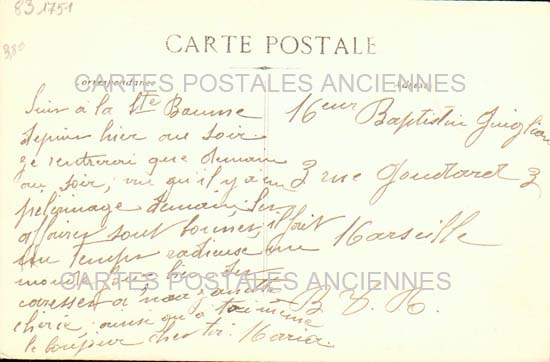 83 1751
380
CARTE POSTALE
Correspondance
Adresse
CARTES POSTALES ANCIENNES
Suis à la Ste Baume
depuis hier au soir
je rentrerai que demain
au soir, vu qu'il y a un
pelerinage demain, les
affaires sont bonnes, il fait
un temps radieuse un
monde
caresses à
cherie, ainsi qu'à toi même
le bonjour chez toi. Maria
Meur
Baptistin
3 rue Goudard 3
Marseille
CARTES POSTALES ANCIENNES
B. d. R.